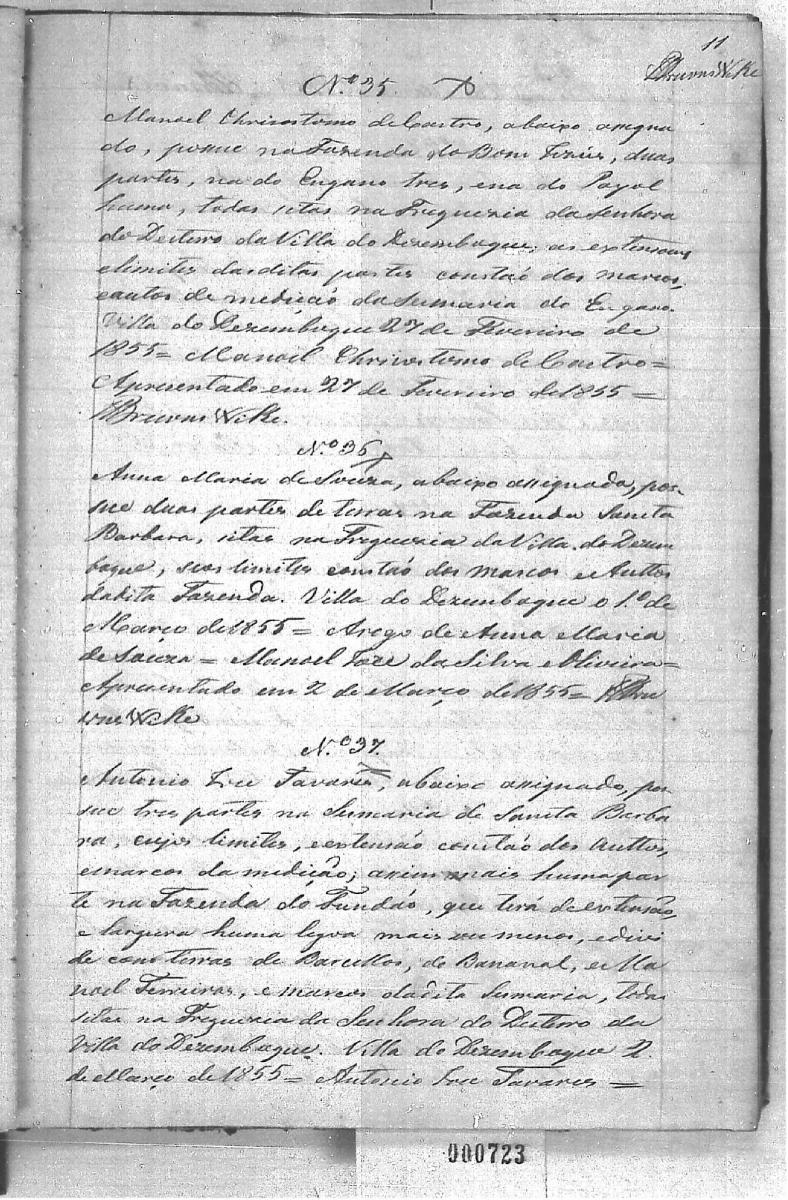 11
BrunsWike
N.º 35.
Manoel Chrisostomo de Castro, abaixo assigna
do, posue na Fazenda do Bom Jezús, duas
partes, na do Engano tres, ena do Payol
huma, todas sitas na Freguezia da Senhora
do Desterro da Villa do Dezemboque; as extensoens
elimites dasditas partes constaó dos marcos,
eautos de mediçaó da Sumaria do Engano.
Villa do Dezemboque 27 de Fevereiro de
1855= Manoel Chrisostomo de Castro=
Apresentado em 27 de Fevereiro de 1855=
BrunsWike.
N.º 36
Anna Maria de Souza, abaixo assignada, pos-
sue duas partes de terras na Fazenda Sancta
Barbara, sitas na Freguezia da Villa do Dezem
boque, seos limites constaó dos marcos e Auttos
dadita Fazenda. Villa do Dezemboque o 1.º de
Março de 1855= Arogo de Anna Maria
de Souza= Manoel Joze da Silva e Oliveira=
Apresentado em 2 de Março de 1855= Bru
nsWike
N.º 37.
Antonio Joze Tavares, abaixo assignado, pos
sue tres partes na Sumaria de Sancta Barba
ra, cujos limites, eextensaó constaó dos Auttos,
emarcos da mediçaõ; assim mais huma par
te na Fazenda do Fundaó, que terá de extensaõ,
e largura huma legoa mais ou menos, edivi
de com terras de Barcellos, do Bananal, e Ma
noel Ferreiras, e marcos dadita Sumaria, todas
sitas na Freguezia da Senhora do Desterro da
Villa do Dezemboque. Villa do Dezemboque 2.
de Março de 1855= Antonio Joze Tavares=
000723